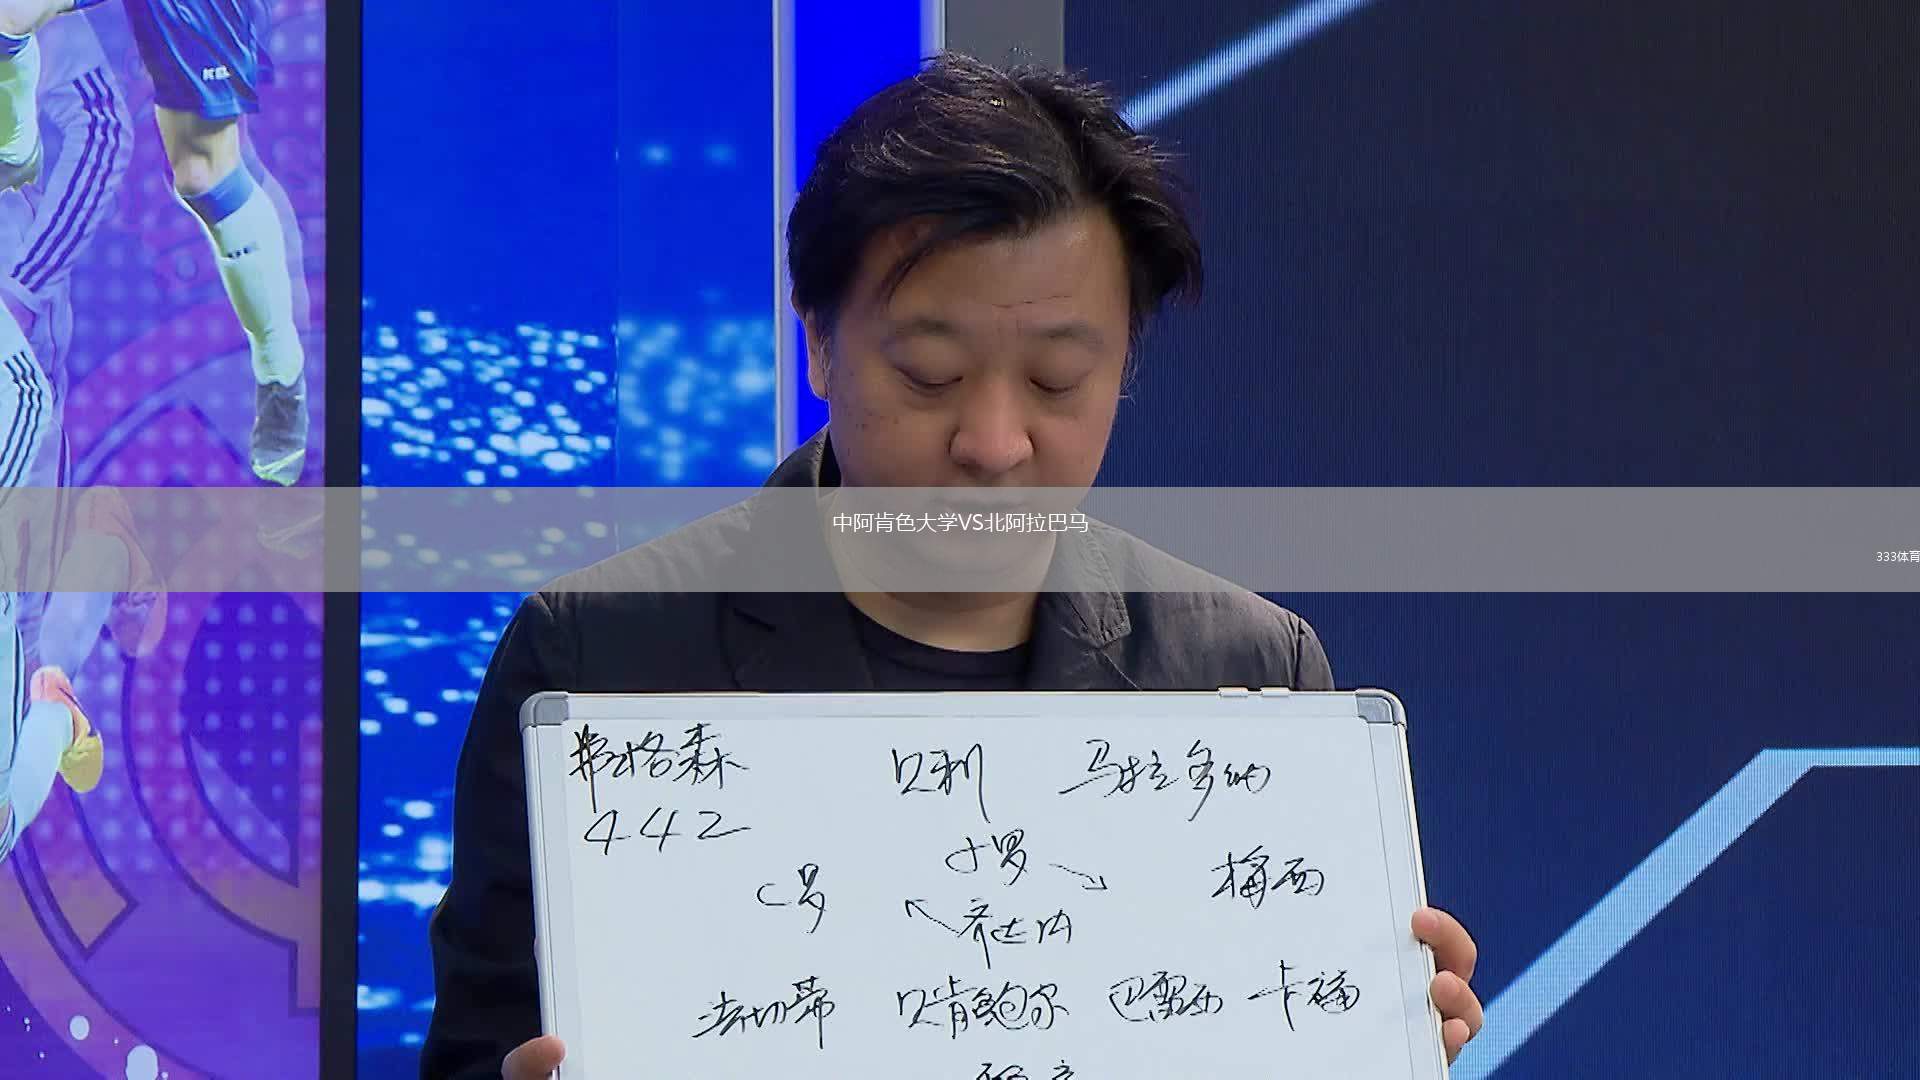 中阿肯色大学VS北阿拉巴马
333体育
弗格森 贝利 马拉多纳
442
小罗
C罗 梅西
齐达内
法切蒂 贝肯鲍尔 巴雷西 卡福